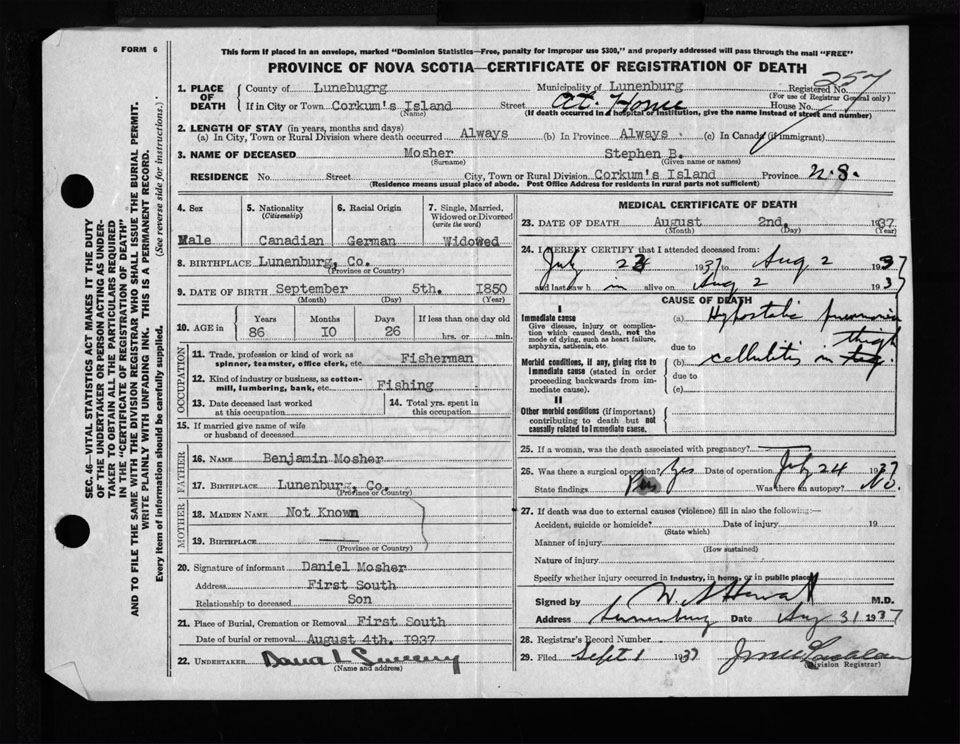 FORM 6
This form if placed in an envelope, marked "Dominion Statistics—Free, penalty for improper use $300," and properly addressed will pass through the mail "FREE"
PROVINCE OF NOVA SCOTIA—CERTIFICATE OF REGISTRATION OF DEATH
257
1. PLACE OF DEATH County of Lunebugrg Municipality of Lunenburg Registered No.
(For use of Registrar General only)
If in City or Town Corkum's Island Street At Home House No.
(Name) (If death occurred in a hospital or institution, give the name instead of street and number)
2. LENGTH OF STAY (in years, months and days)
(a) In City, Town or Rural Division where death occurred Always (b) In Province Always (c) In Canada (if immigrant)
3. NAME OF DECEASED Mosher Stephen B.
(Surname) (Given name or names)
RESIDENCE No. Street City, Town or Rural Division Corkum's Island Province N.S.
(Residence means usual place of abode. Post Office Address for residents in rural parts not sufficient)
4. Sex 5. Nationality (Citizenship) 6. Racial Origin 7. Single, Married, Widowed or Divorced (write the word)
Male Canadian German Widowed
8. BIRTHPLACE Lunenburg, Co.
(Province or Country)
9. DATE OF BIRTH September 5th. 1850
(Month) (Day) (Year)
10. AGE in Years Months Days If less than one day old
86 10 26 hrs. or min.
OCCUPATION
11. Trade, profession or kind of work as spinner, teamster, office clerk, etc. Fisherman
12. Kind of industry or business, as cotton-mill, lumbering, bank, etc. Fishing
13. Date deceased last worked at this occupation 14. Total yrs. spent in this occupation
15. If married give name of wife or husband of deceased
FATHER
16. NAME Benjamin Mosher
17. BIRTHPLACE Lunenburg, Co.
(Province or Country)
MOTHER
18. MAIDEN NAME Not Known
19. BIRTHPLACE
(Province or Country)
20. Signature of informant Daniel Mosher
Address First South
Relationship to deceased Son
21. Place of Burial, Cremation or Removal First South
Date of burial or removal August 4th. 1937
22. UNDERTAKER
(Name and address)
MEDICAL CERTIFICATE OF DEATH
23. DATE OF DEATH August 2nd. 1937
(Month) (Day) (Year)
24. I HEREBY CERTIFY that I attended deceased from:
July 1937 to Aug 2 1937
and last saw h im alive on Aug 2 1937
CAUSE OF DEATH
Immediate cause (a) Hypostatic pneumonia
Give disease, injury or complication which caused death, not the mode of dying, such as heart failure, asphyxia, asthenia, etc.
due to
thigh
Morbid conditions, if any, giving rise to immediate cause (stated in order proceeding backwards from immediate cause). (b) cellulitis in
due to
(c)
II
Other morbid conditions (if important) contributing to death but not causally related to immediate cause.
25. If a woman, was the death associated with pregnancy?
26. Was there a surgical operation? Yes Date of operation July 24 1937
State findings Pus Was there an autopsy? No.
27. If death was due to external causes (violence) fill in also the following:—
Accident, suicide or homicide? Date of injury 19
(State which)
Manner of injury
(How sustained)
Nature of injury
Specify whether injury occurred in industry, in home, or in public place
Signed by M.D.
Address Lunenburg Date Aug 31 1937
28. Registrar's Record Number
29. Filed Sept 1 1937
(Division Registrar)
SEC. 46—VITAL STATISTICS ACT MAKES IT THE DUTY
OF THE UNDERTAKER OR PERSON ACTING AS UNDER-
TAKER TO OBTAIN ALL THE PARTICULARS REQUIRED
IN THE "CERTIFICATE OF REGISTRATION OF DEATH"
AND TO FILE THE SAME WITH THE DIVISION REGISTRAR WHO SHALL ISSUE THE BURIAL PERMIT.
WRITE PLAINLY WITH UNFADING INK. THIS IS A PERMANENT RECORD.
Every item of information should be carefully supplied. (See reverse side for instructions.)